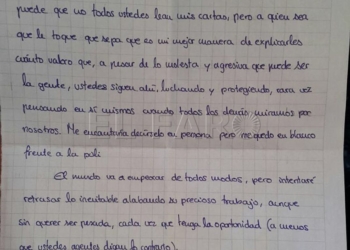 puede que no todos ustedes lean mis cartas, pero a quien sea
que le toque que sepa que es mi mejor manera de explicarles
cuánto valoro que, a pesar de lo molesta y agresiva que puede ser
la gente, ustedes siguen ahí, luchando y protegiendo, rara vez
pensando en sí mismos cuando todos los demás miramos por
nosotros. Me encantaría decírselo en persona pero me quedo en blanco
frente a la poli
El mundo va a empeorar de todos modos, pero intentaré
retrasar lo inevitable alabando su precioso trabajo, aunque
sin querer ser pesada, cada vez que tenga la oportunidad (a menos
que ustedes agentes digan lo contrario).